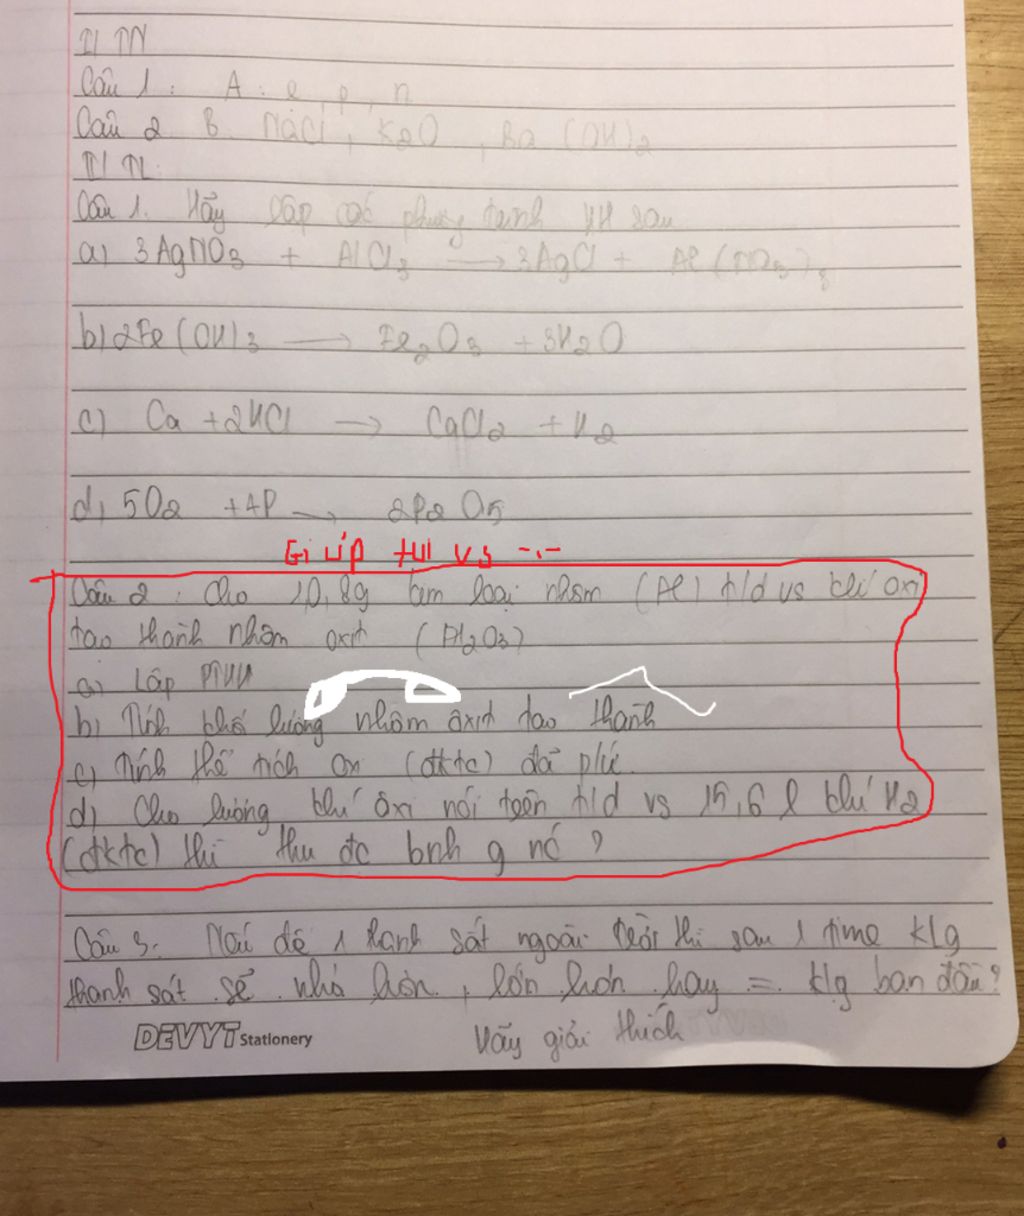 I/ TN
Câu 1: A: e, p, n
Câu 2 B. NaCl, K2O, Ba(OH)2
II/ TL:
Câu 1. Hãy lập các phương trình HH sau
a) 3AgNO3 + AlCl3 → 3AgCl + Al(NO3)3
b) 2Fe(OH)3 → Fe2O3 + 3H2O
c) Ca + 2HCl → CaCl2 + H2
d) 5O2 + 4P → 2P2O5
Giúp tui vs -.-
Câu 2: Cho 10,8g kim loại nhôm (Al) t/d vs khí oxi
tạo thành nhôm oxit (Al2O3)
a) Lập PTHH
b) Tính khối lượng nhôm oxit tạo thành
c) Tính thể tích oxi (đktc) đã
d) Cho lượng khí ôxi nói trên t/d vs 15,6 l khí H2
(đktc) thì thu đc bnh g nó?
Câu 3. Nếu để 1 thanh sắt ngoài trời thì sau 1 time klg
thanh sắt sẽ nhỏ hơn, lớn hơn hay = klg ban đầu?
Hãy giải thích
DEVYT Stationery